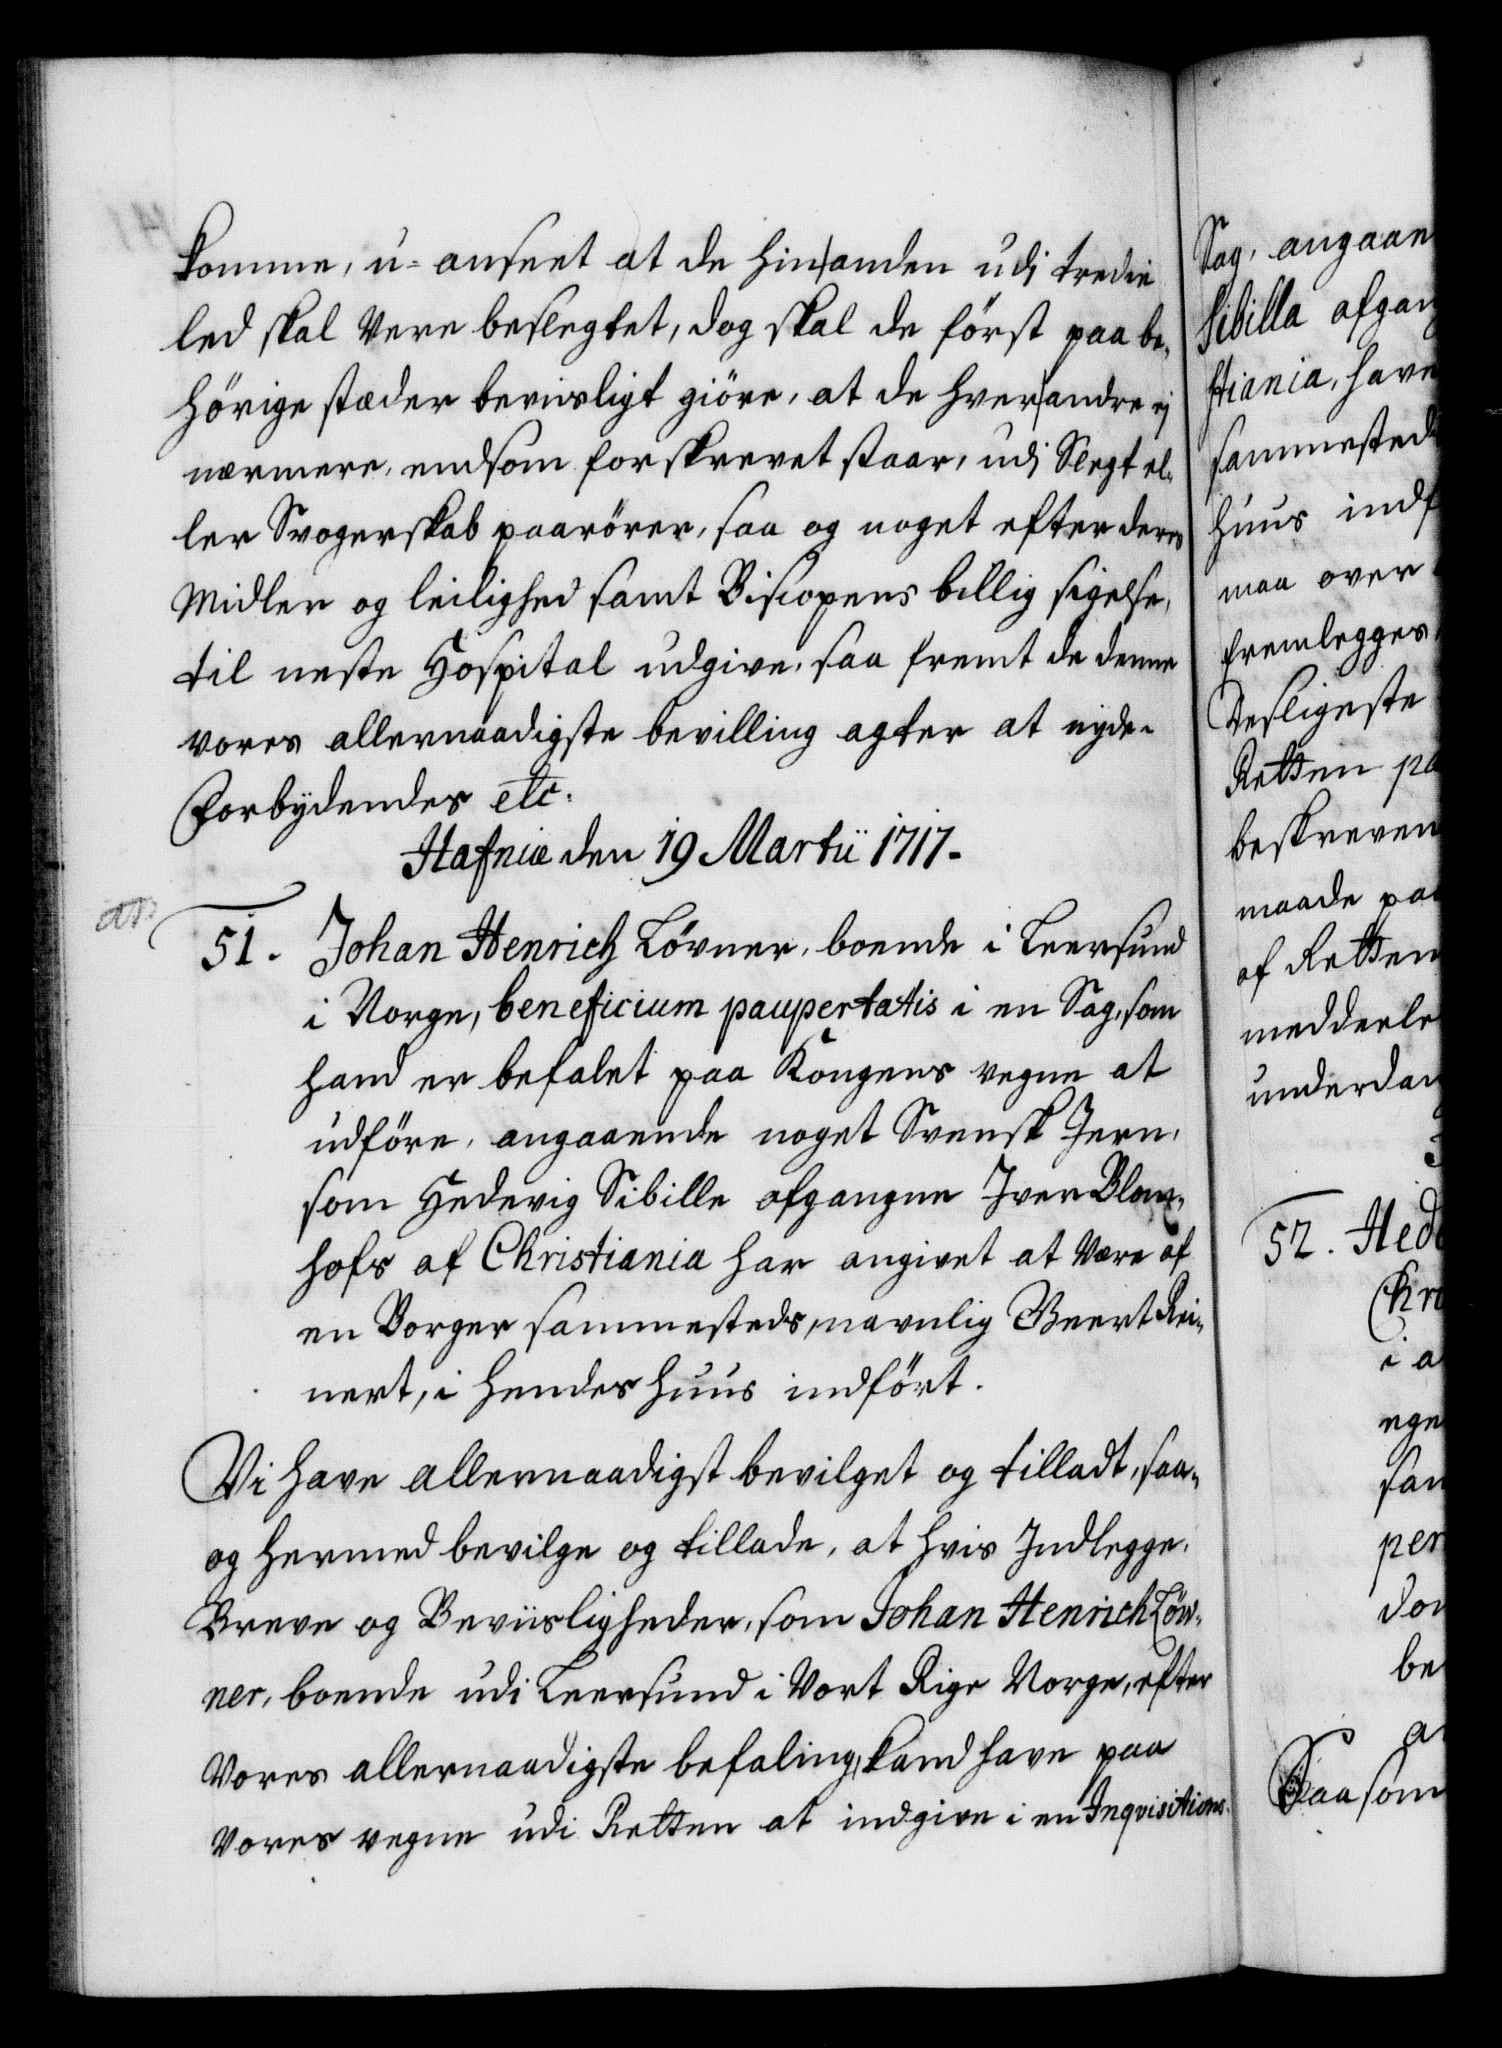 komme, u-anseet at de hinanden udj tredie
led skal Vere beslegtet, dog skal de först paa be„
hörige stæder beviisligt giöre, at de hverandre ej
nærmere, end som forskrevet staar, udj Slegt el„
ler Svogerskab paarörer, saa og noget efter deres
Midler og leilighed samt Biscopens billig sigelse,
til neste Hospital udgive, saa fremt de denne
vores allernaadigste bevilling agter at nyde.
Forbydendes etc.
Hafniæ den 19 Martii 1717.
51. Johan Henrich Lövner, boende i Leersund
i Norge, beneficium paupertatis i en Sag, som
hand er befalet paa Kongens vegne at
udföre, angaaende noget Svensk Jern,
som Hedevig Sibille afgangne Iver Blom„
hofs af Christiania har angivet at Være af
en Borger sammesteds, navnlig Geert Rei„
nert, i hendes huus indfört.
Vi have allernaadigst bevilget og tilladt, saa„
og hermed bevilge og tillade, at hvis Indlegge,
Breve og Beviisligheder, som Johan Henrich Löv„
ner, boende udi Leersund i Vort Rige Norge, efter
Vores allernaadigste befaling, kand have paa
Vores vegne udi Retten at indgive i en Inqvisitions
Sag, angaaen
Sibilla afgang
stiania, have
sammested
huus indf
maa over
fremlegges
Desligeste
Retten pa
beskreven
maade paa
af Retten
meddeele
underdan
52. Hede
Chri
i a
ege
sam
per
don
be
a
Saasom